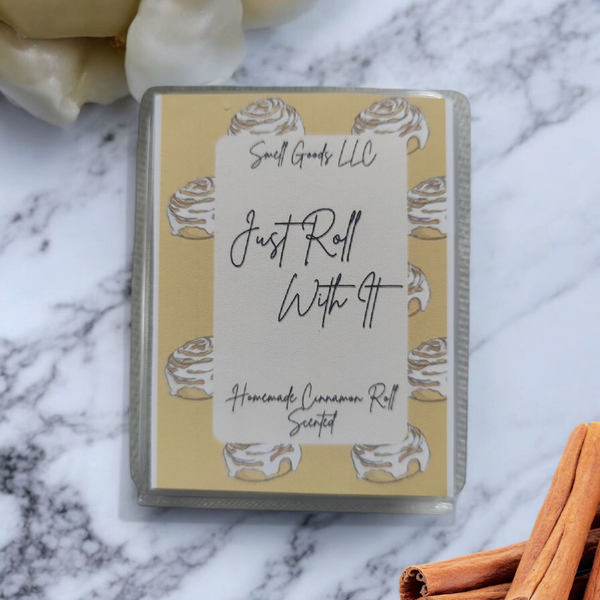 Smell Goods LLC
Just Roll
With It
Homemade Cinnamon Roll
Scented